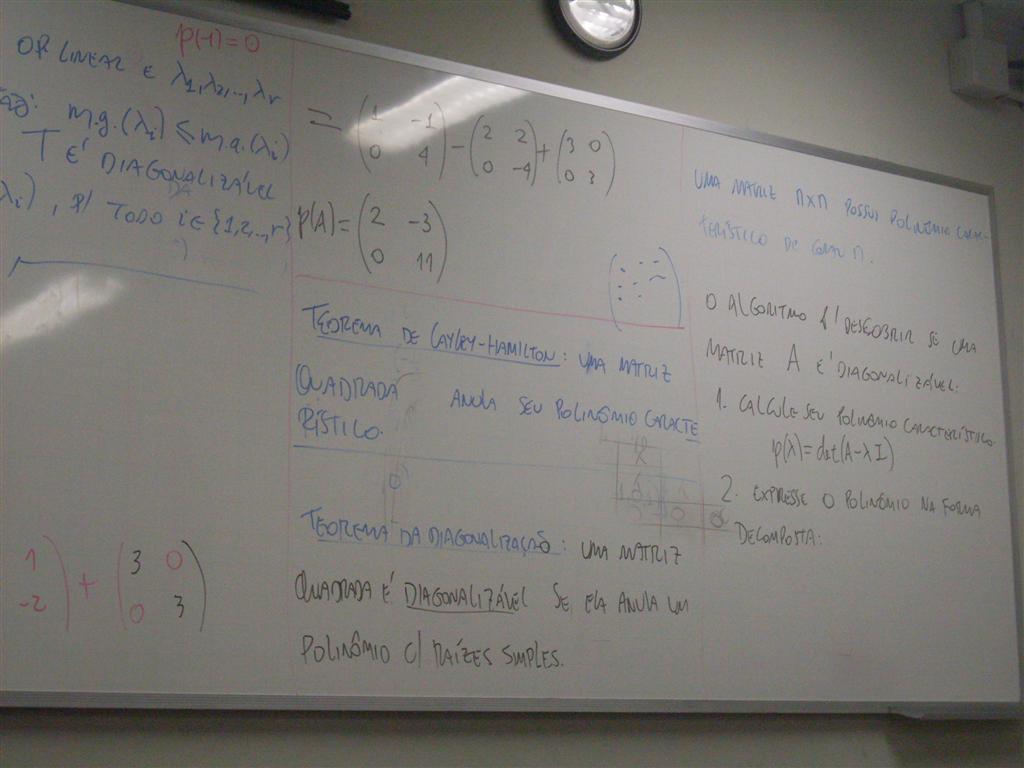 p(-1)=0
OP LINEAR E λ1,λ2,..,λr
m.g.(λi) ≤ m.a.(λi)
T É DIAGONALIZÁVEL
λi), P/ TODO i∈{1,2,..,r}
1
-2 ) + ( 3 0
0 3 )
= ( 1 -1
0 4 ) - ( 2 2
0 -4 ) + ( 3 0
0 3 )
p(A) = ( 2 -3
0 11 )
TEOREMA DE CAYLEY-HAMILTON: UMA MATRIZ
QUADRADA ANULA SEU POLINÔMIO CARACTE
RÍSTICO.
TEOREMA DA DIAGONALIZAÇÃO: UMA MATRIZ
QUADRADA É DIAGONALIZÁVEL SE, ELA ANULA UM
POLINÔMIO C/ RAÍZES SIMPLES.
UMA MATRIZ n×n POSSUI POLINÔMIO CARAC-
TERÍSTICO DE GRAU n.
O ALGORITMO P/ DESCOBRIR SE UMA
MATRIZ A É DIAGONALIZÁVEL:
1. CALCULE SEU POLINÔMIO CARACTERÍSTICO
p(λ)=det(A-λI)
2. EXPRESSE O POLINÔMIO NA FORMA
DECOMPOSTA: